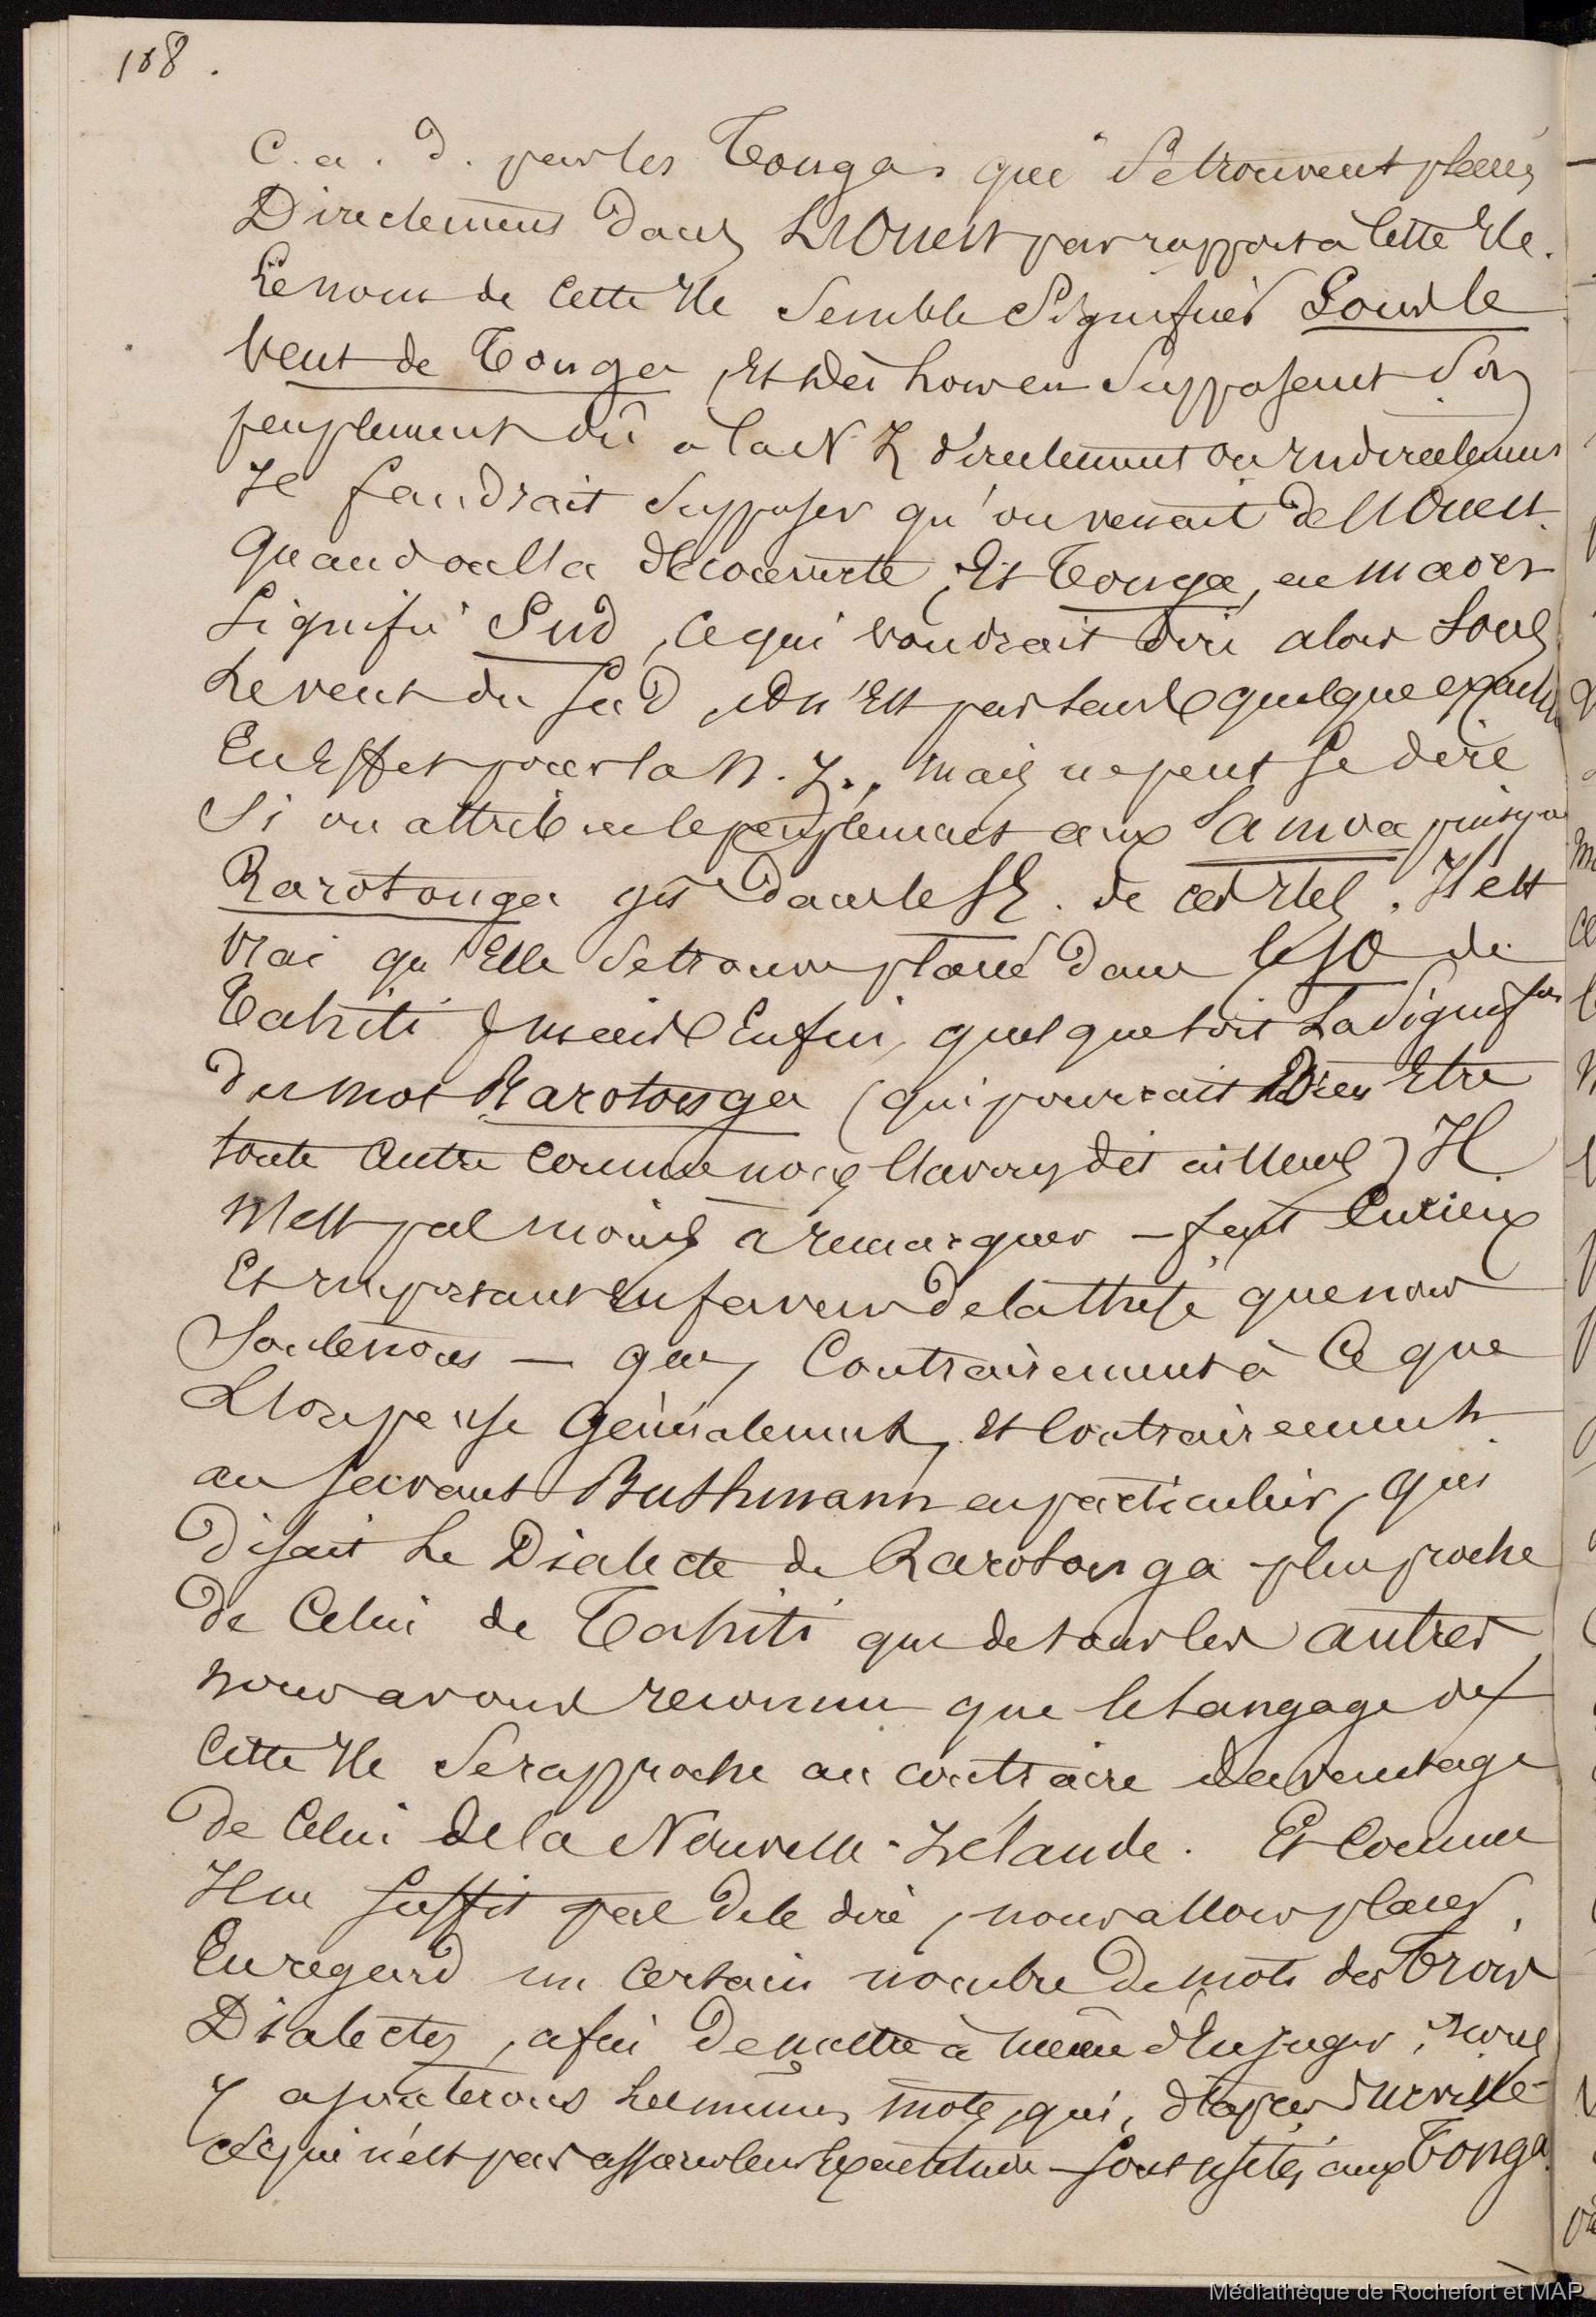 188.
C. a. d. par les Tongas qui se trouvent placés
Directement dans L'Ouest par rapport à Cette Ile.
Le nom de Cette Ile Semble Signifier Sous le
Vent de Tonga, Et en Supposant Son
peuplement dû à la N Z directement ou Indirectement
Il faudrait Supposer qu'on venait de l'Ouest
Quand on l'a découverte, Et Tonga, en maori
Signifie Sud, Ce qui voudrait dire alors Sous
Le vent du Sud, n'Est pas Sans quelque
En Effet pour la N. Z., Mais ne peut Se dire
Si on attribue le peuplement aux Samoa puisque
Rarotonga gît dans le SE. de ces Iles. Il est
Vrai qu'Elle Se trouve placé dans le SO de
Tahiti mais Enfin, quel que soit La Signifon
du mot Rarotonga (qui pourrait Bien Etre
toute Autre Comme nous l'avons dit ailleurs) Il
N'est pas moins à remarquer — fait Curieux
Et Important En faveur de la thèse que nous
Soutenons — que, Contrairement à Ce que
L'on pense Généralement, Et Contrairement
au Savant Buschmann en particulier, qui
Disait Le Dialecte de Rarotonga plus proche
De Celui de Tahiti que de tous les autres
nous avons reconnu que le Langage de
Cette Ile Se rapproche au contraire davantage
De Celui de la Nouvelle-Zélande. Et Comme
Il ne Suffit pas de le dire, nous allons placer,
En regard un Certain nombre de mots des Trois
Dialectes, afin de mettre à même d'En juger; nous
Y ajouterons Les mêmes mots, qui, d'après Durville —
Ce qui n'est pas assurer leur Exactitude — Sont usités aux Tonga.
Médiathèque de Rochefort et MAP